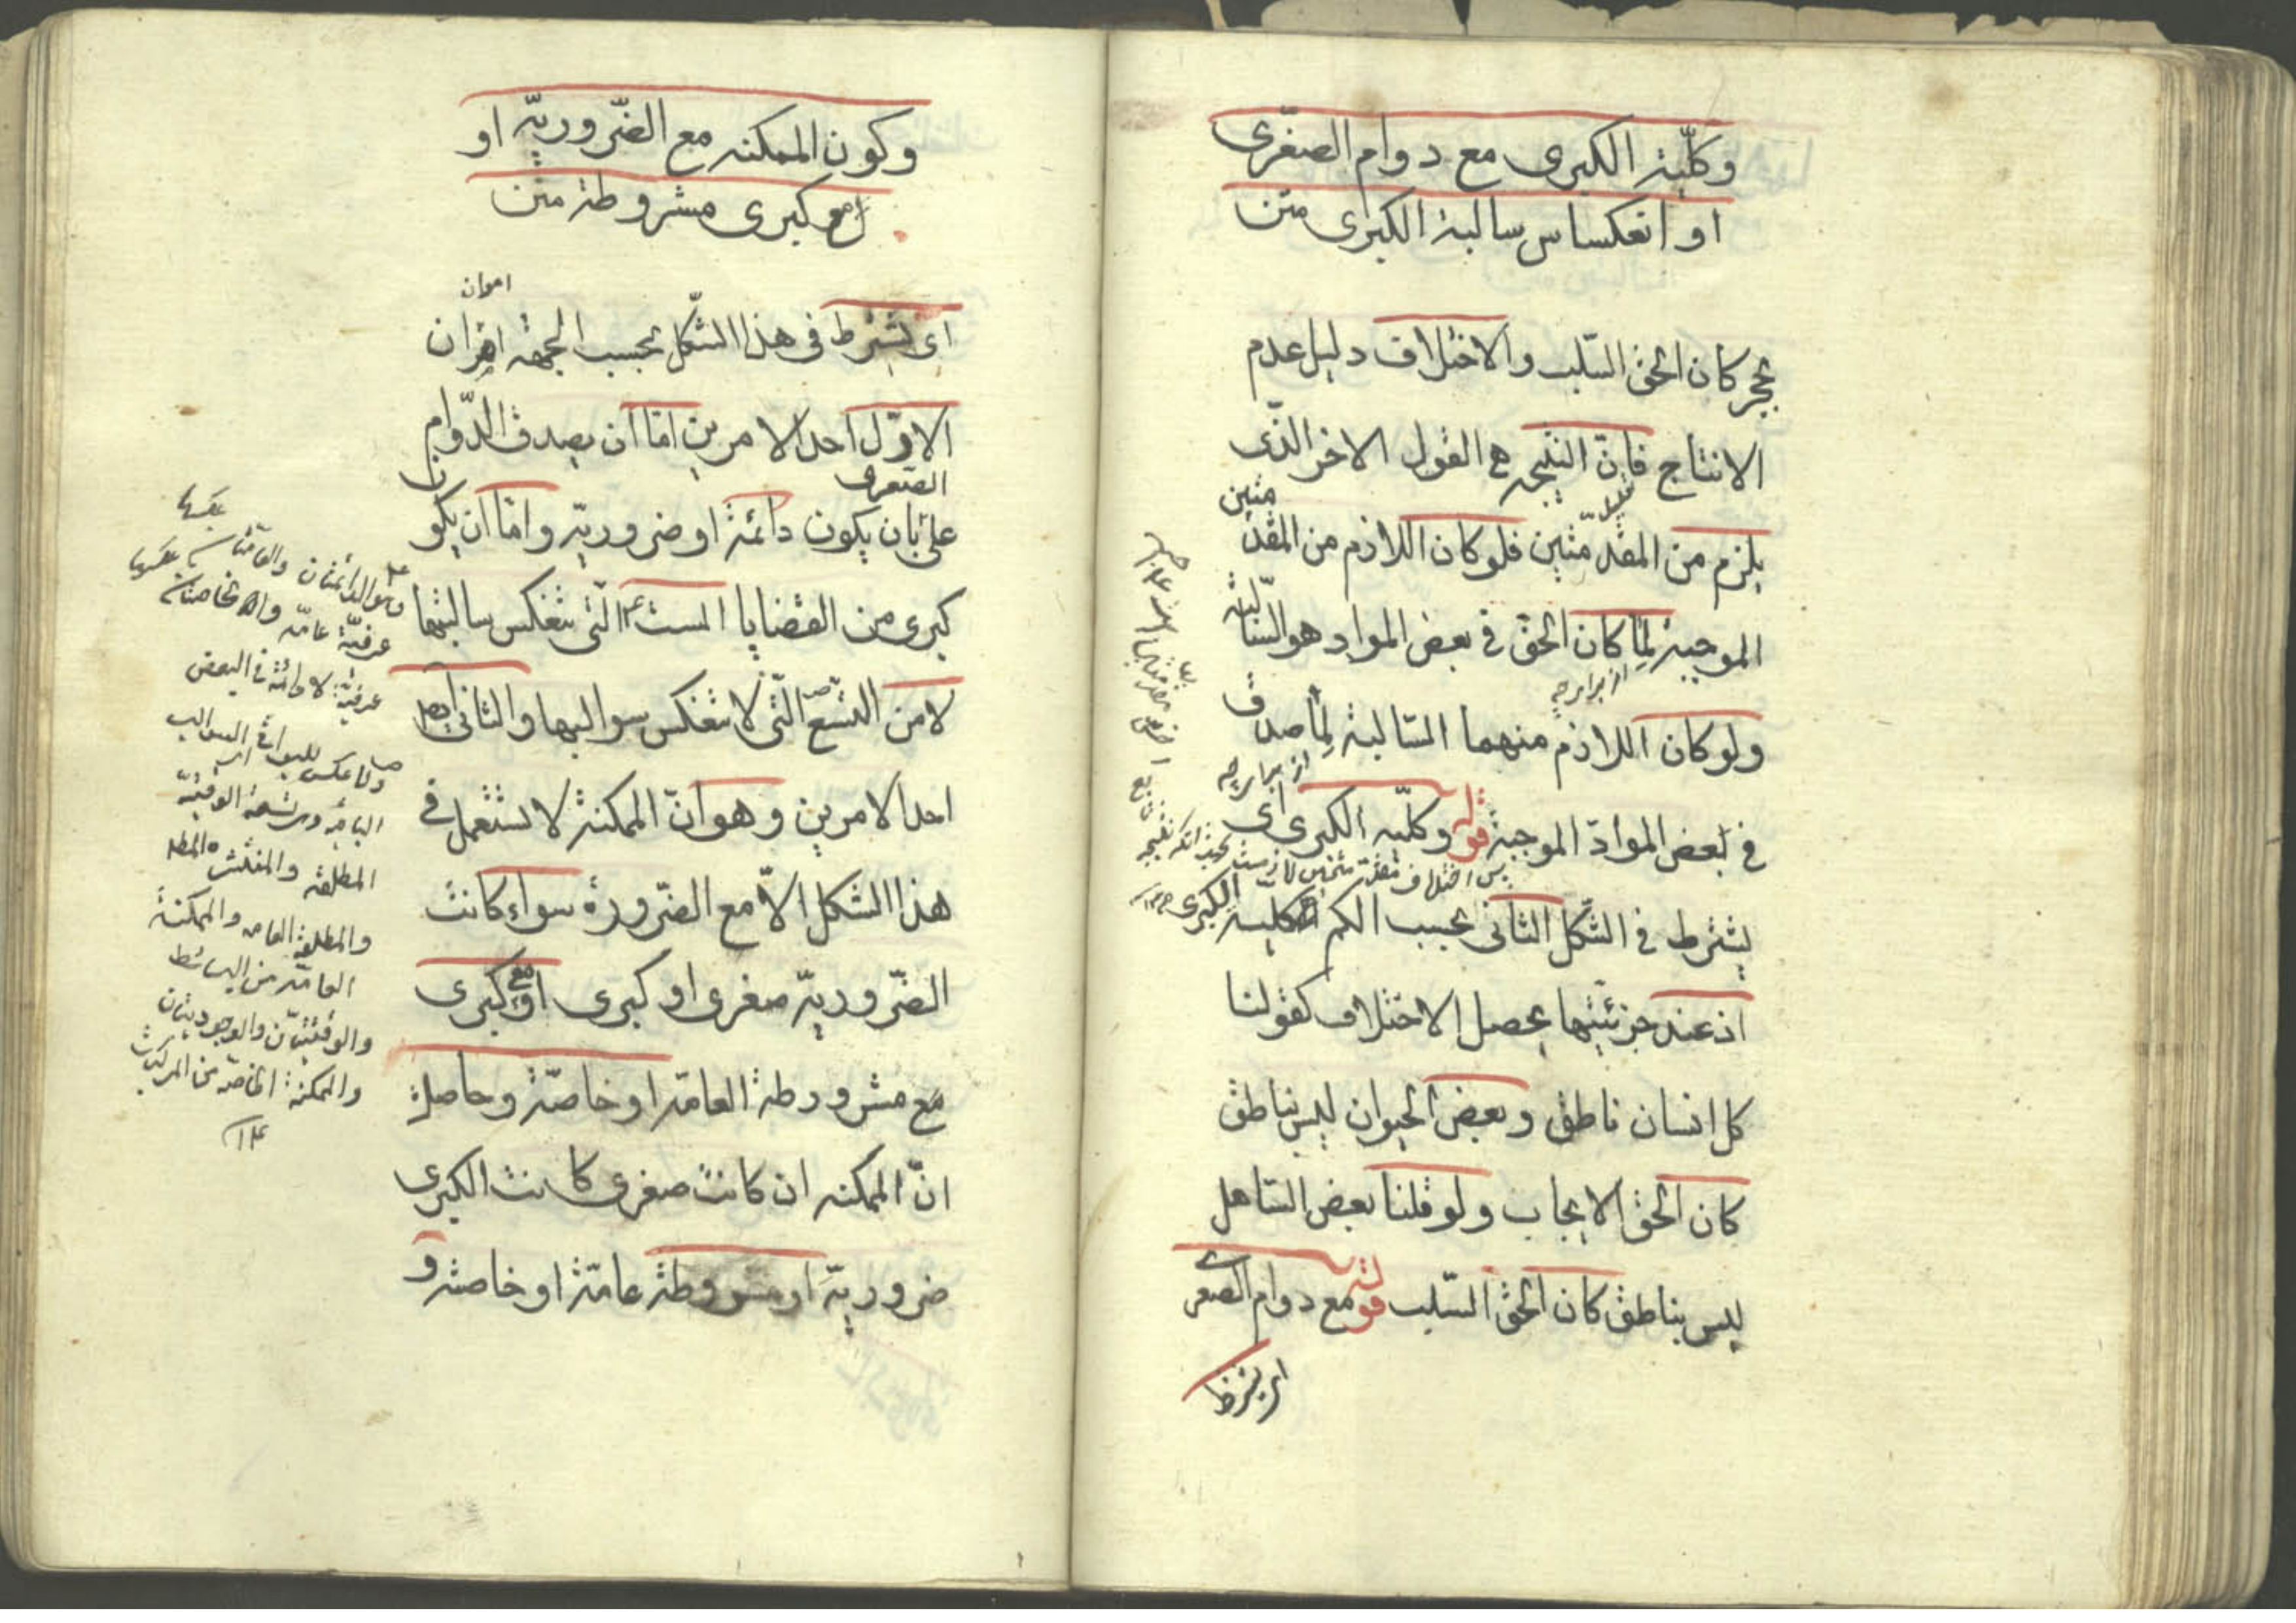 وكلّية الكبرى مع دوام الصغرى
او انعكساس سالبة الكبرى متن
بحجر كان الحق السّلب والاختلاف دليل عدم
الانتاج فانّ النتيجه هى القول الاخر الذّى
يلزم من المقدّمتين فلو كان اللازم من المقدّ
متين
الموجبة لما كان الحق فى بعض المواد هو السّالبة
از برابر چه
ولو كان اللازم منهما السّالبة لما صدق
از برابر چه
فى بعض الموادّ الموجبة قوله وكلّيه الكبرى اى
يشترط فى الشّكل الثانى بحسب الكم كلية الكبرى
اذ عند جزئيّتها يحصل الاختلاف كقولنا
كل انسان ناطق وبعض الحيوان ليس بناطق
كان الحق الايجاب ولو قلنا بعض الصّاهل
ليس بناطق كان الحق السّلب قوله مع دوام الصغرى
اى يشترط
وكون الممكنه مع الضّروريّه او
مع كبرى مشروطة متن
اى يشترط فى هذا الشّكل بحسب الجهة اقتران
الاوّل احد الامرين امّا ان يصدق الدّوام
الصّغرى
على بان يكون دائمة او ضروريّه وامّا ان يكون
كبرى من القضايا الست الّتى تنعكس سالبتها
لا من التّسع الّتى لا تنعكس سوالبها والثانى ايضا
احد الامرين وهو انّ الممكنة لا تستعمل فى
هذا الشكل الاّ مع الضّرورة سواء كانت
الضّروريّه صغرى او كبرى او مع كبرى
مع مشروطة العامّة او خاصّة وحاصله
انّ الممكنه ان كانت صغرى كانت الكبرى
ضروريّة او مشروطة عامّة او خاصة و
وهو الدائمتان والعامّتان
عرفيّة عامّه والخاصتان
عرفيّة لا دائمة فى البعض
ولا عكس للبواقى السوالب
الباقيه وهى تسعة الوقتيّة
المطلقه والمنتشره المطلـ
والمطلقة العامه والممكنة
العامّة من البسائط
والوقتيتان والوجوديتان
والممكنة الخاصّة من المركبات
١٢